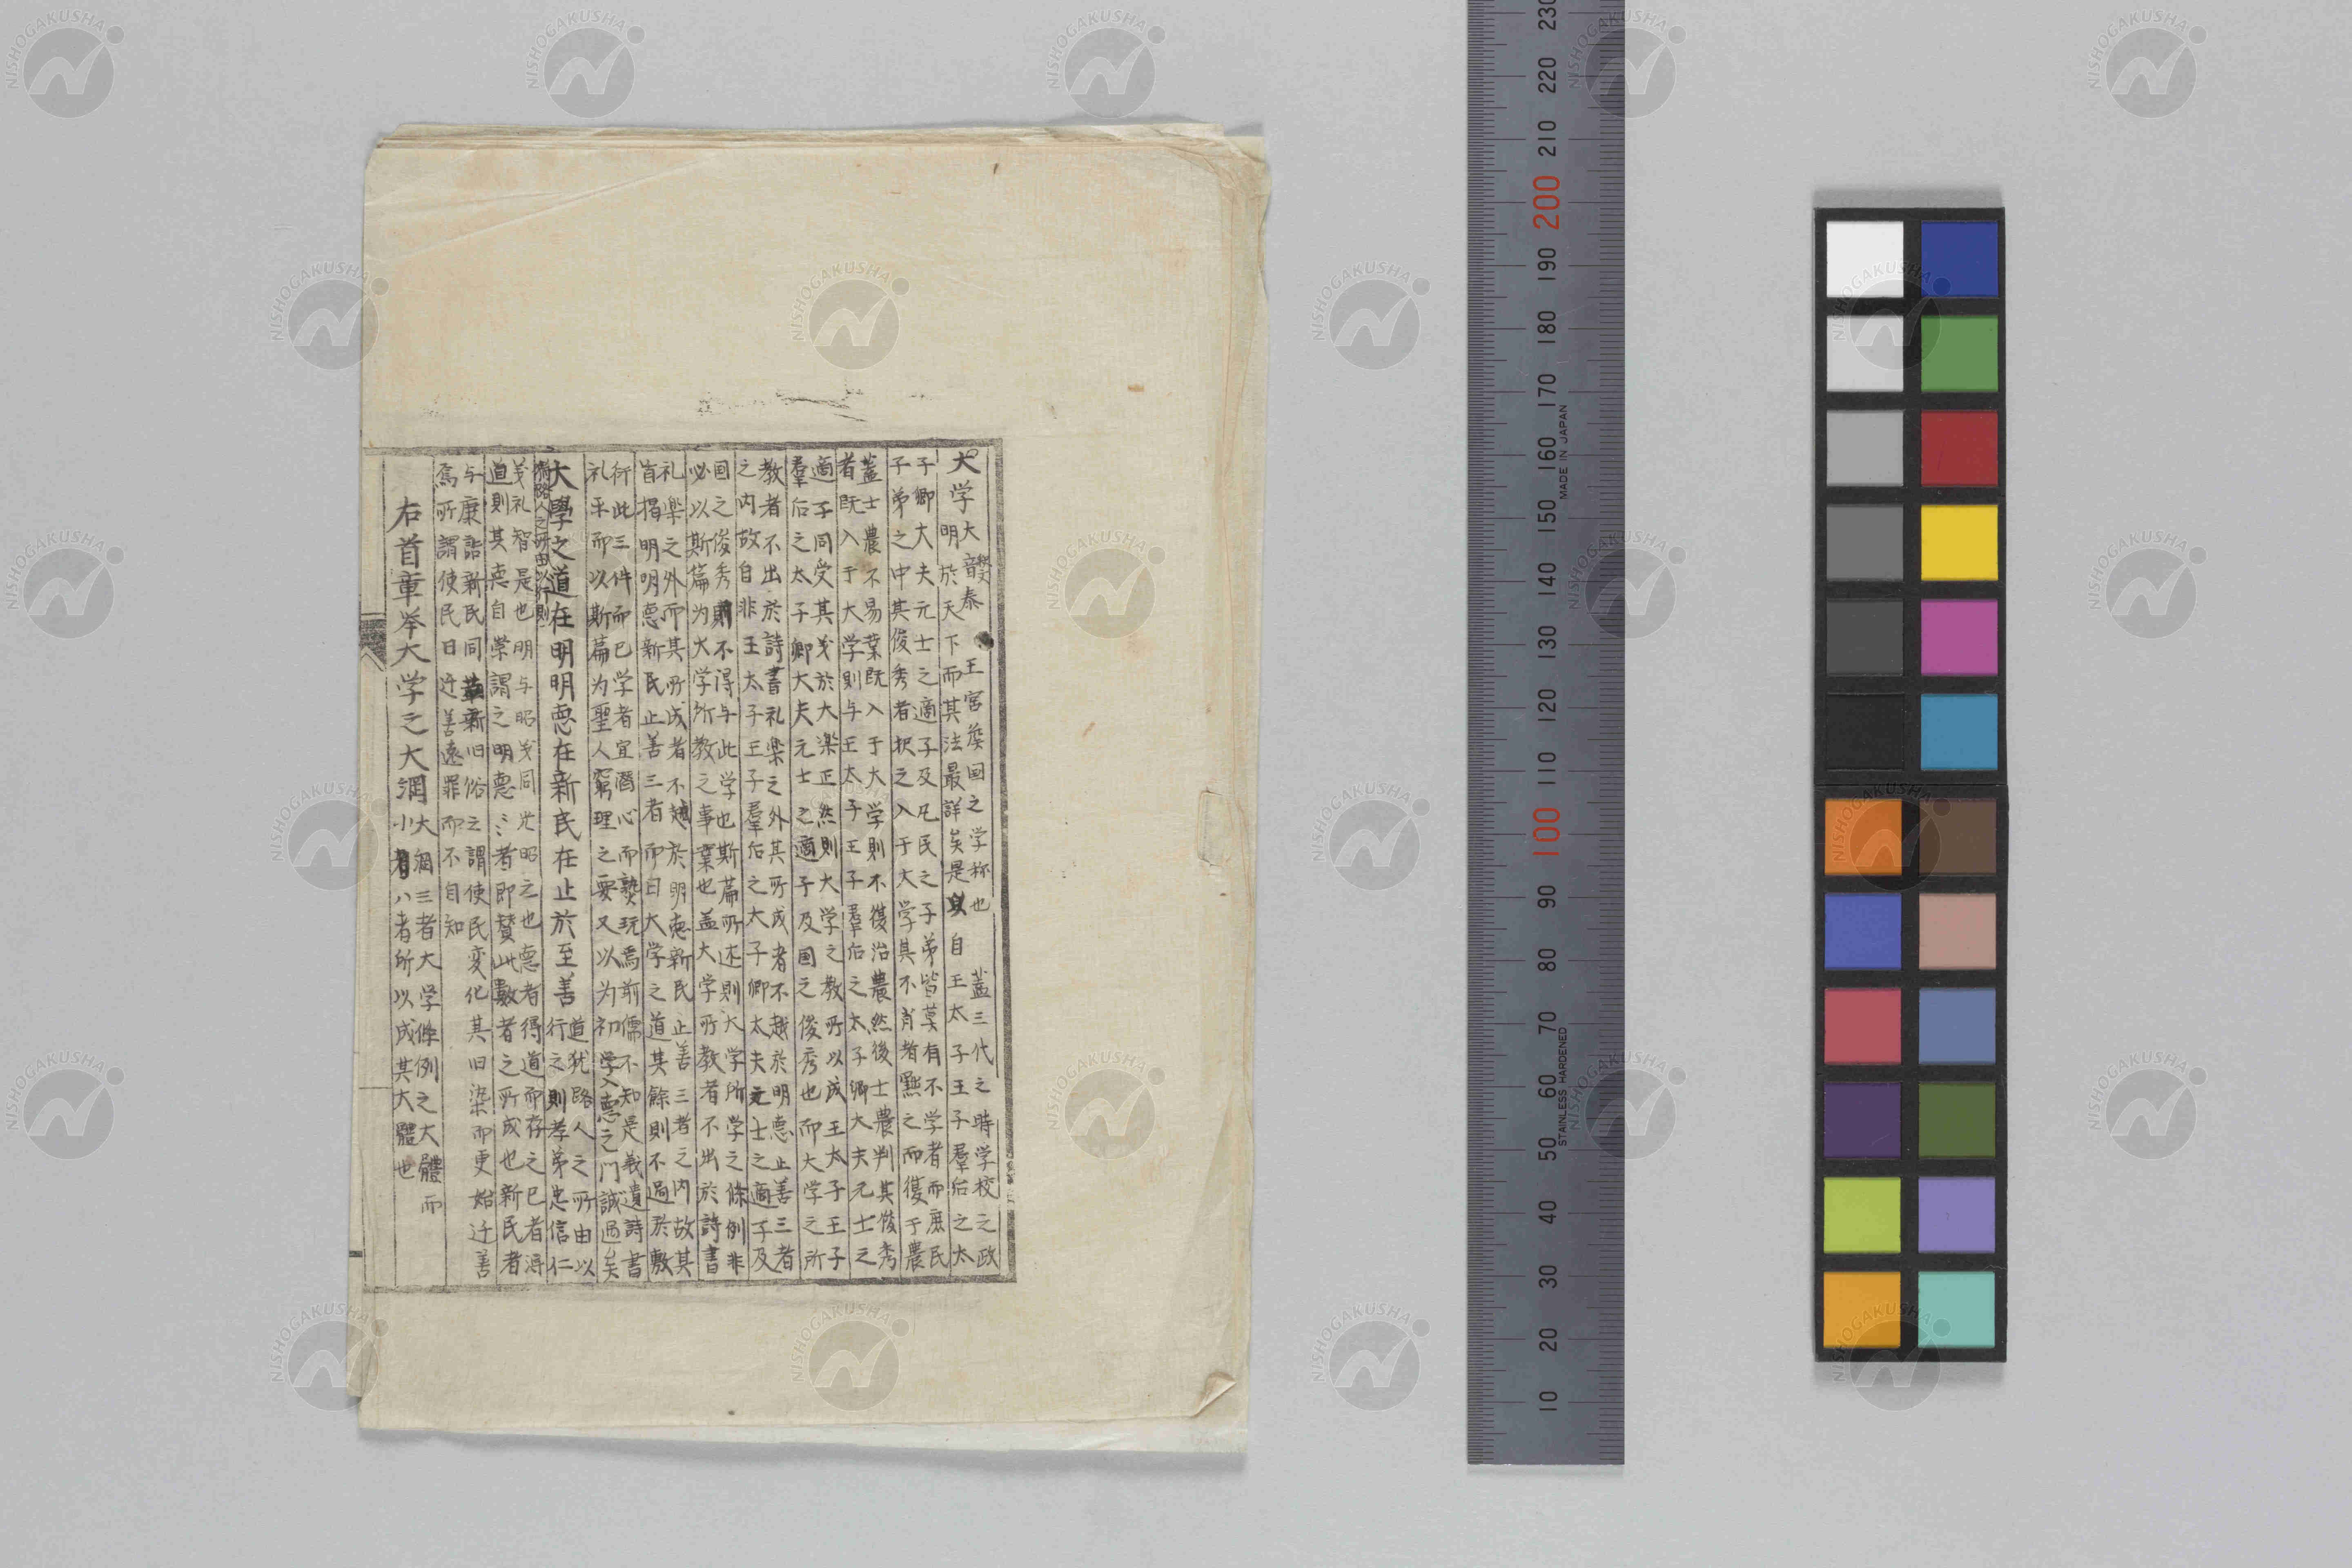 大学
大音泰 王宮癸国之学称也 蓋三代之時学校之政
明於天下而其法最詳矣是以自王太子王子羣后之太
子卿大夫元士之適子及凡民之子弟皆莫有不学者而庶民
子弟之中其俊秀者択之入于大学其不肖者黜之而復于農
蓋士農不易葉既入于大学則不復治農然後士農判其俊秀
者既入于大学則与王太子王子羣后之太子卿大夫元士之
適子同受其义於大楽正然則大学之教所以成王太子王子
羣后之太子卿大夫元士之適子及国之俊秀也而大学之所
教者不出於詩書礼楽之外其所成者不越於明悳止善三者
之内故自非王太子王子羣后之太子卿太夫元士之適子及
国之俊秀則不得与此学也斯篇所述則大学所学之條例非
必以斯篇为大学所教之事業也盖大学所教者不出於詩書
礼楽之外而其所成者不越於明悳新民止善三者之内故其
首揭明明悳新民止善三者而曰大学之道其餘則不過於敷
衍此三件而已学者宜潛心而熟玩焉前儒不知是義遺詩書
礼乐而以斯篇为聖人窮理之要又以为初学入悳之门誠過矣
大學之道在明明悳在新民在止於至善
道犹路人之所由以
行之則孝弟忠信仁
猶路人之所由以行則
义礼智是也明与昭义同光昭之也悳者得道而存之已者得
道則其悳自崇謂之明悳〻者即賛此數者之所成也新民者
与康誥新民同革新旧俗之謂使民変化其旧染而更始迁善
焉所謂使民日迁善遠罪而不自知
右首章举大学之大綱
大綱三者大学件例之大體而
小者八者所以成其大體也
230
220
210
200
190
180
170
160
150
140
130
120
110
100
90
80
70
60
50
40
30
20
10
MADE IN JAPAN
STAINLESS HARDENED
NISHOGAKUSHA